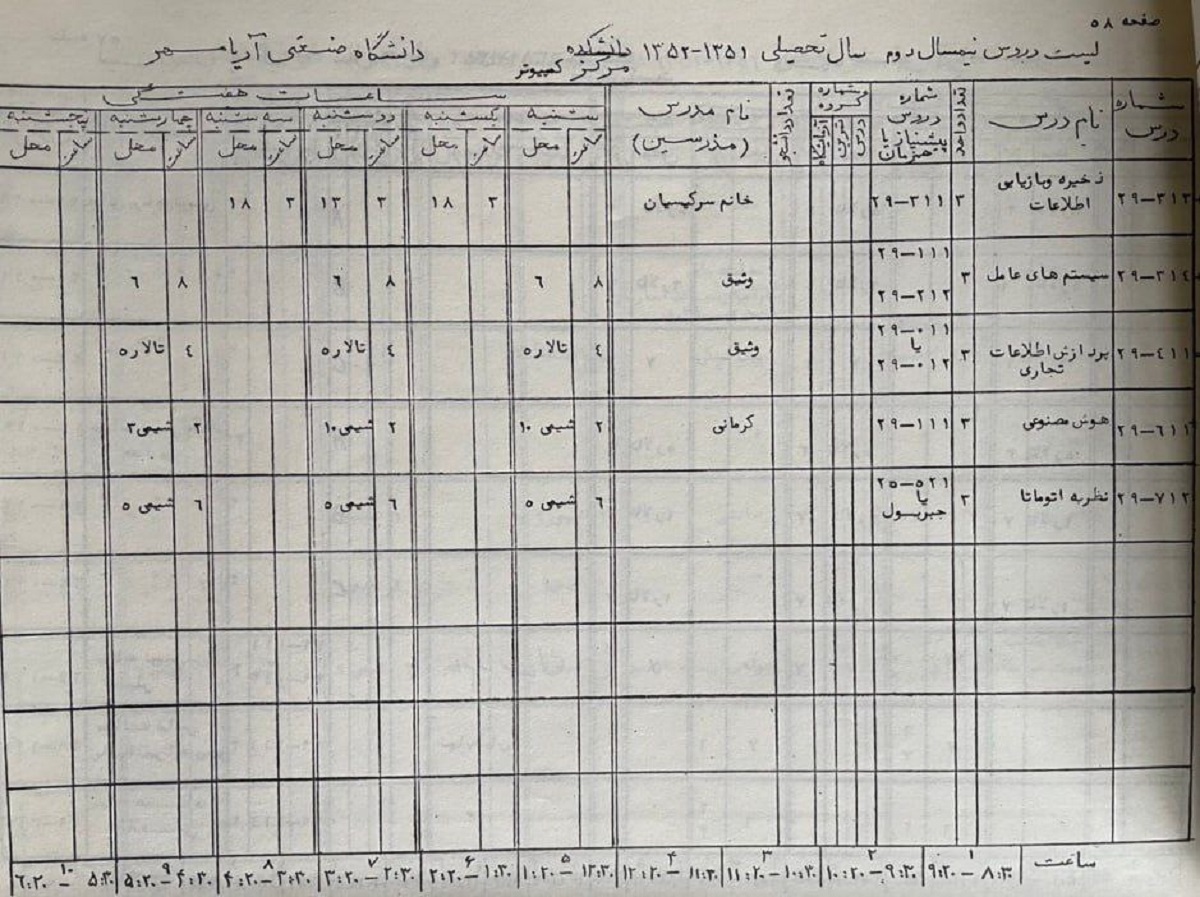 صفحه ۵۸
لیست دروس نیمسال دوم سال تحصیلی ۱۳۵۱-۱۳۵۲ دانشکده دانشگاه صنعتی آریامهر
مرکز کمپیوتر
شماره درس
نام درس
تعداد واحد
شماره دروس پیشنیاز یا همزمان
شماره گروه
درس
تمرین
آزمایشگاه
تعداد دانشجو
نام مدرس (مدرسین)
ساعات هفتگی
شنبه یکشنبه دوشنبه سه شنبه چهارشنبه پنجشنبه
ساعت محل ساعت محل ساعت محل ساعت محل ساعت محل ساعت محل
۲۹-۳۱۳ ذخیره وبازیابی اطلاعات ۳ ۲۹-۳۱۱ خانم سرکیسیان ۳ ۱۸ ۳ ۱۳ ۳ ۱۸
۲۹-۳۱٤ سیستم های عامل ۳ ۲۹-۱۱۱ ۲۹-۲۱۲ وثیق ۸ ٦ ۸ ٦ ۸ ٦
۲۹-٤۱۱ پردازش اطلاعات تجاری ۳ ۲۹-۰۱۱ یا ۲۹-۰۱۲ وثیق ٤ تالار۵ ٤ تالار۵ ٤ تالار۵
۲۹-٦۱۱ هوش مصنوعی ۳ ۲۹-۱۱۱ کرمانی ۲ شیمی ۱۰ ۲ شیمی۱۰ ۲ شیمی۳
۲۹-۷۱۲ نظریه اتوماتا ۳ ۲۵-۵۲۱ یا جبربول ٦ شیمی ۵ ٦ شیمی ۵ ٦ شیمی ۵
ساعت
۱ ۲ ۳ ۴ ۵ ۶ ۷ ۸ ۹ ۱۰
۸:۳۰ – ۹:۲۰ ۹:۳۰ – ۱۰:۲۰ ۱۰:۳۰ – ۱۱:۲۰ ۱۱:۳۰ – ۱۲:۲۰ ۱۲:۳۰ – ۱:۲۰ ۱:۳۰ – ۲:۲۰ ۲:۳۰ – ۳:۲۰ ۳:۳۰ – ۴:۲۰ ۴:۳۰ – ۵:۲۰ ۵:۳۰ – ۶:۲۰